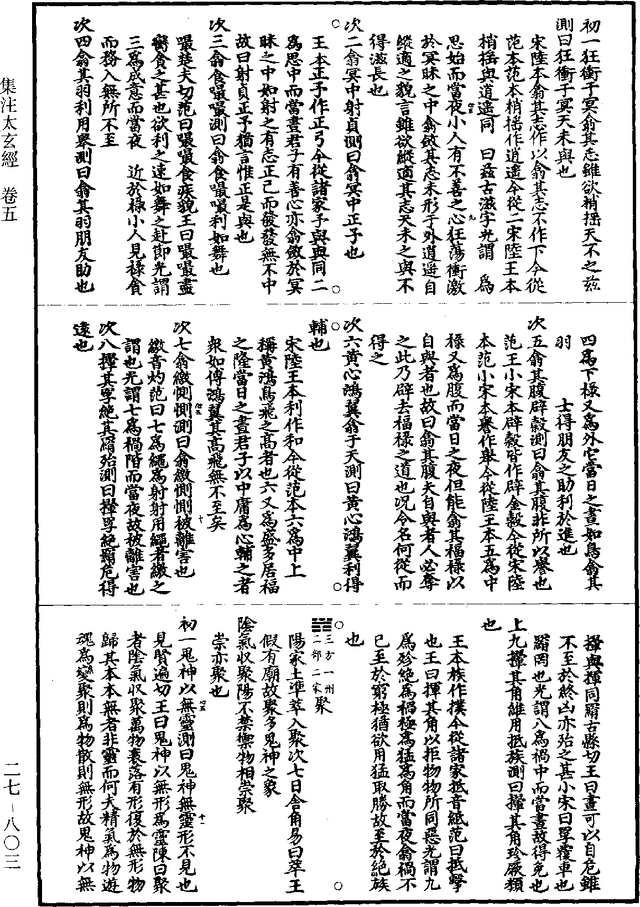 初一狂衝于冥翕其志雖欲梢搖天不之兹
測曰狂衝于冥天未與也
宋陸本翕其志作以翕其志不作下今從
范本范本梢搖作逍遙今從二宋陸王本
梢搖與逍遙同 曰兹古滋字光謂一爲
思始而當夜小人有不善之心狂蕩衝激
於冥昧之中翕斂其志未形于外逍遙自
縱適之貌言雖欲縱適其志天未之與不
得滋長也
次二翕冥中射貞測曰翕冥中正予也
王本正予作正弓今從諸家予與與同二
爲思中而當晝君子有善心亦翕斂於冥
昧之中如射之有志正己而發發無不中
故曰射貞正予猶言惟正是與也
次三翕食嘬嘬測曰翕食嘬嘬利如舞也
嘬楚夬切范曰嘬嘬食疾貌王曰嘬嘬盡
臠食之甚也欲利之速如舞之赴節光謂
三爲成意而當夜 近於祿小人見祿食
而務入無所不至
次四翕其羽利用舉測曰翕其羽朋友助也
四爲下祿又爲外它當日之晝如鳥翕其
羽 士得朋友之助利於進也
次五翕其腹辟穀測曰翕其腹非所以譽也
范王小宋本辟穀皆作辟金穀今從宋陸
本范小宋本譽作舉今從陸王本五爲中
祿又爲腹而當日之夜但能翕其福祿以
自與者也故曰翕其腹夫自與者人必奪
之此乃辟去福祿之道也况令名何從而
得之
次六黄心鴻翼翕于天測曰黄心鴻翼利得
輔也
宋陸王本利作和今從范本六爲中上
稱黄鴻鳥飛之高者也六又爲盛多居福
之隆當日之晝君子以中庸爲心輔之者
衆如傅鴻翼其高飛無不至矣
次七翕繳惻惻測曰翕繳惻惻被離害也
繳音灼范曰七爲繩爲射射用繩者繳之
謂也光謂七爲禍階而當夜故被離害也
次八揮其罦絶其羂殆測曰揮罦絶羂危得
遠也
揮與揮同羂古縣切王曰晝可以自危雖
不至於終凶亦殆之甚小宋曰罦覆車也
羂罔也光謂八爲禍中而當晝故得免也
上九揮其角維用抵族測曰揮其角殄厥類
也
王本族作撲今從諸家抵音紙范曰抵擊
也王曰揮其角以拒物物所同惡光謂九
爲殄絶爲禍極爲猛爲角而當夜翕禍不
已至於窮極猶欲用猛取勝故至於絶族
也
三方一州
二部二家聚
陽家土準萃入聚次七日舍角易曰萃王
假有廟故聚多鬼神之象
陰氣收聚陽不禁禦物相崇聚
崇亦聚也
初一鬼神以無靈測曰鬼神無靈形不見也
見賢遍切王曰鬼神以無形爲靈陳曰聚
者陰氣收聚萬物衰落有形復於無形物
歸其本本無者非靈而何夫精氣爲物遊
魂爲變聚則爲物散則無形故鬼神以無
集注太玄經 卷五
二七-八〇三